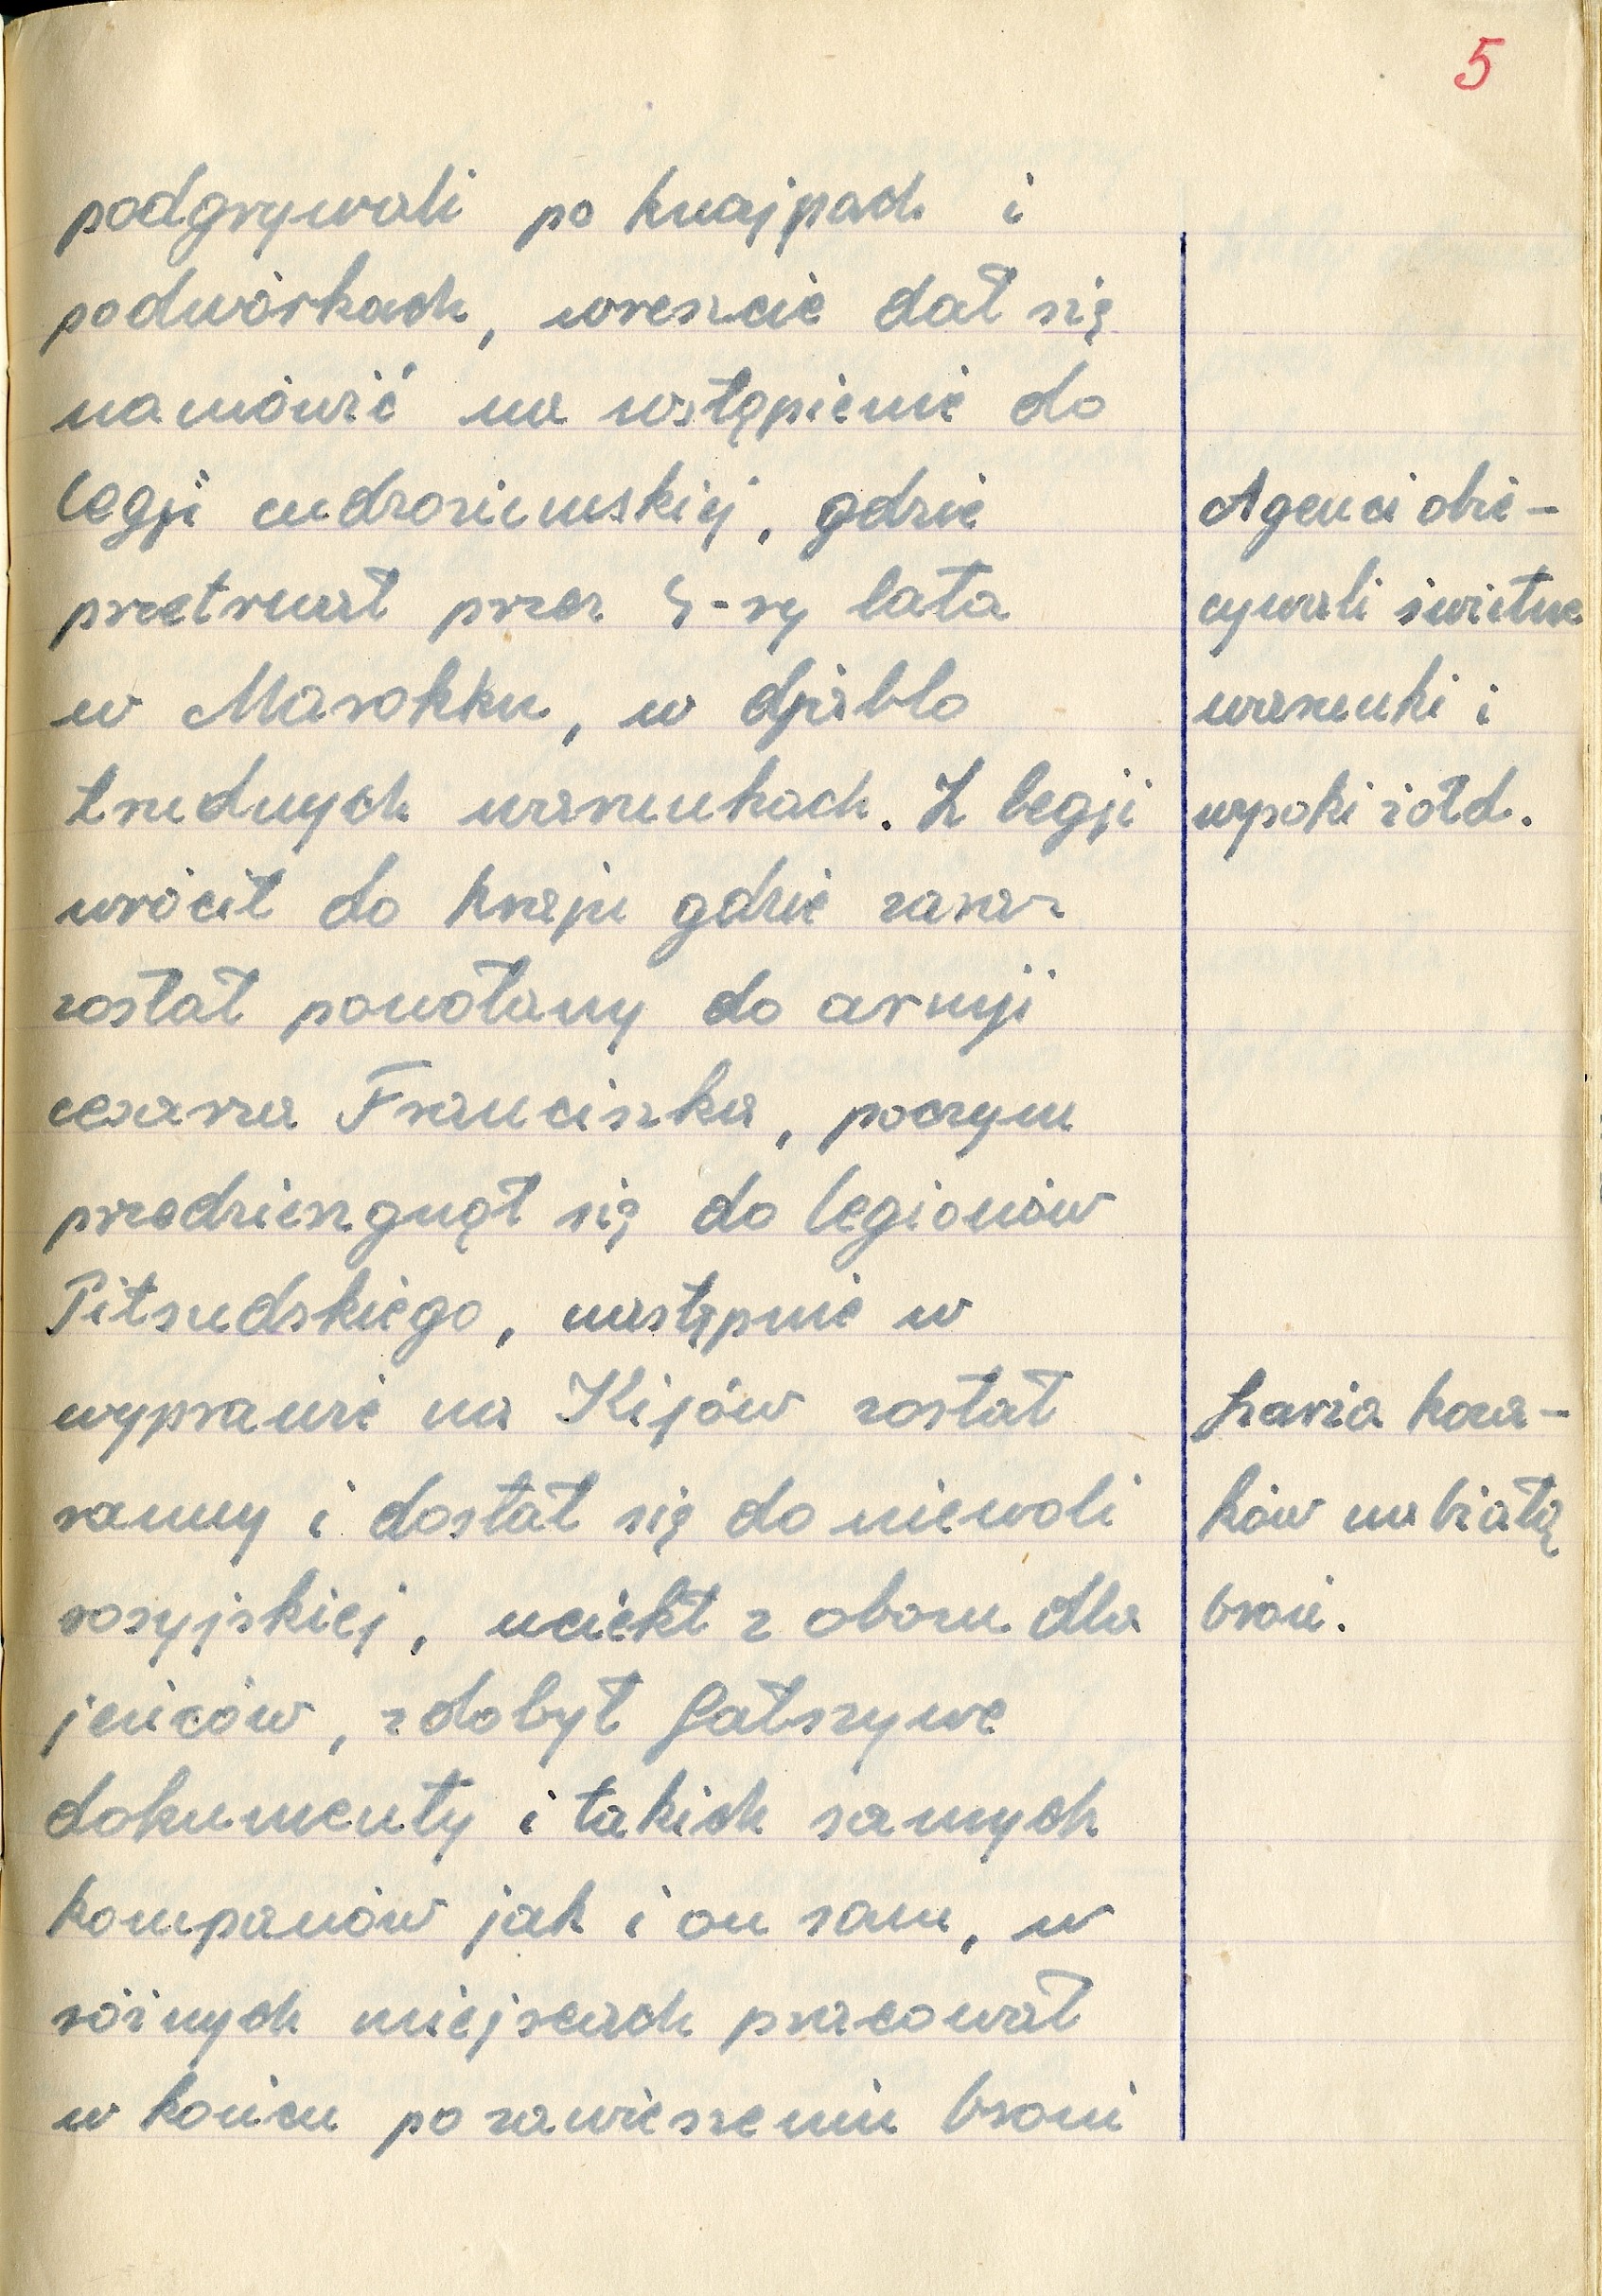 5
podgrywali po knajpach i
podwórkach, wreszcie dał się
namówić na wstąpienie do
legji cudzoziemskiej, gdzie
przetrwał przez 4-ry lata
w Marokku, w djablo
trudnych warunkach. Z legji
wrócił do kraju gdzie zaraz
został powołany do armji
cesarza Franciszka, poczym
przedzierzgnął się do legionów
Piłsudskiego, następnie w
wyprawie na Kijów został
ranny i dostał się do niewoli
rosyjskiej, uciekł z obozu dla
jeńców, zdobył fałszywe
dokumenty i takich samych
kompanów jak i on sam, w
różnych miejscach pracował
w końcu po zawieszeniu broni
Agenci obie-
cywali świetne
warunki i
wysoki żołd.
Szarża koza-
ków na białą
broń.